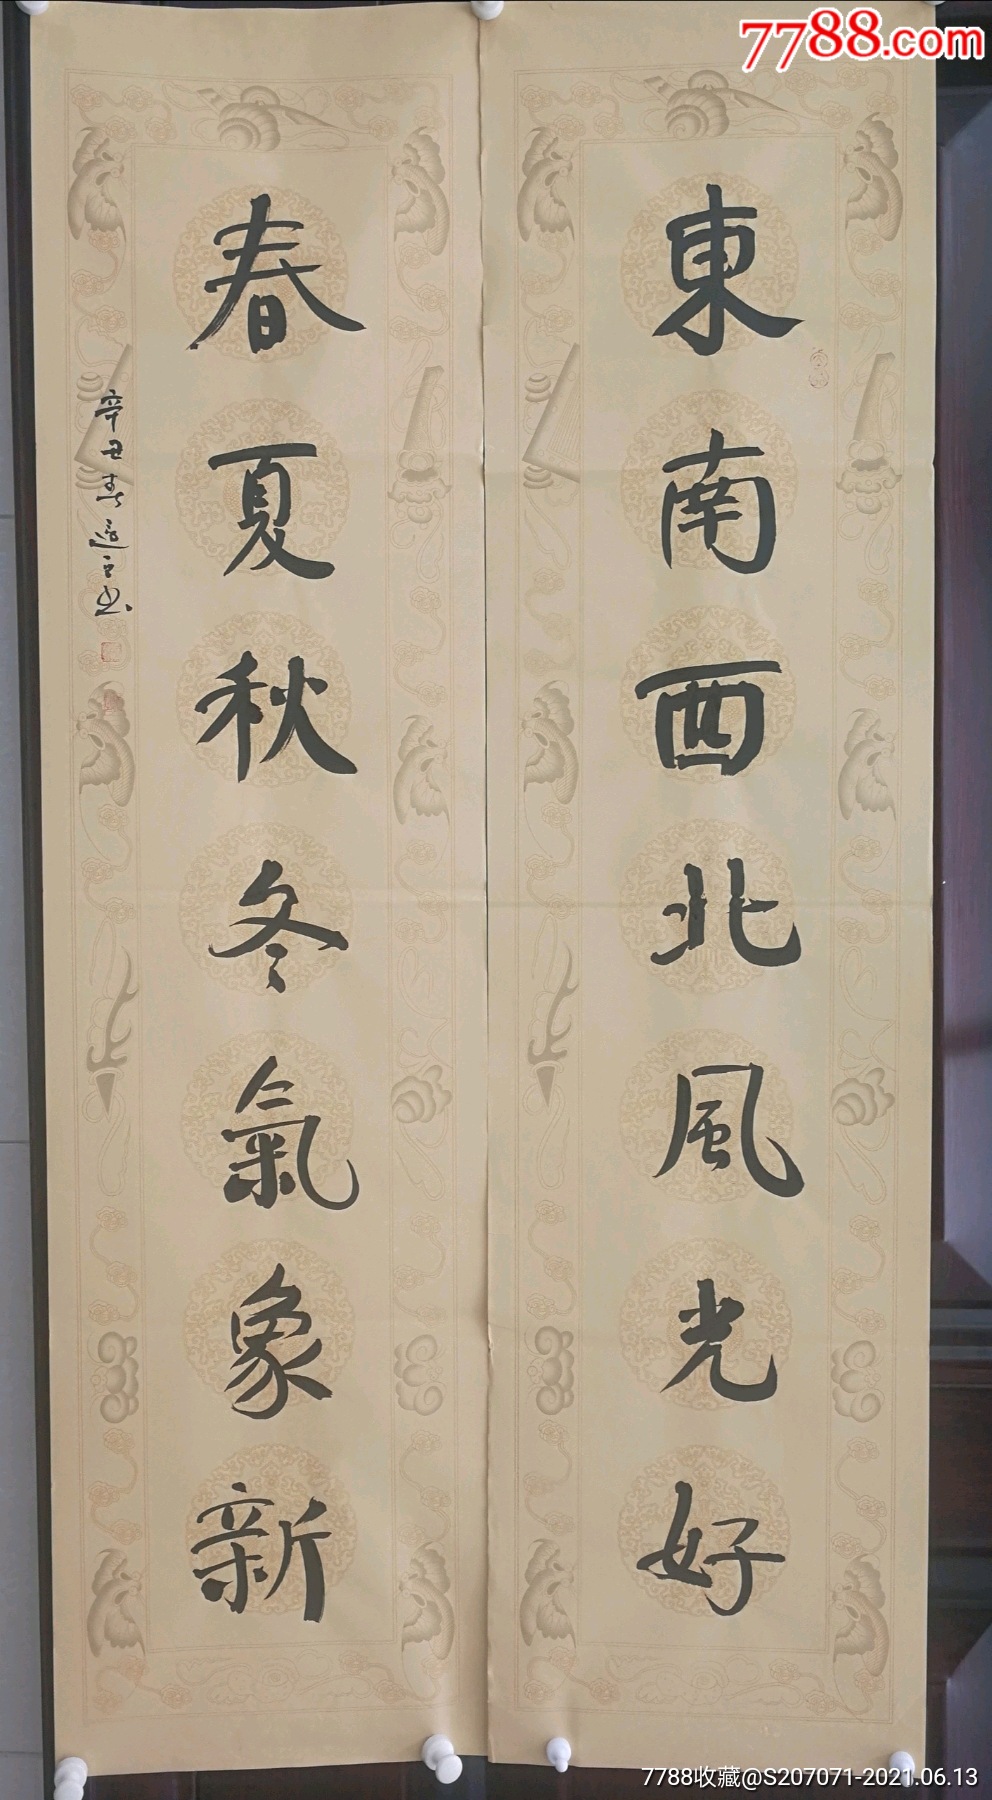 7788.com
東南西北風光好
春夏秋冬氣象新
辛丑春
7788收藏@S207071-2021.06.13